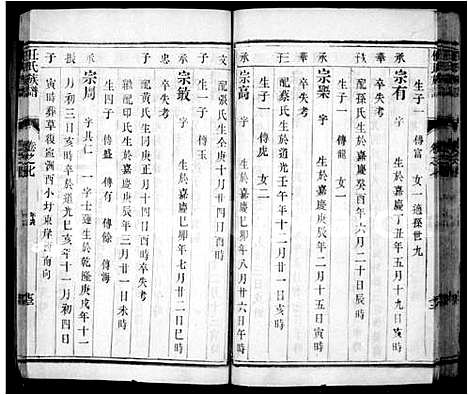 承
宗有
生於嘉慶丁丑年五月十九日亥時
卒失考
配孫氏生於嘉慶癸酉年六月二十日辰時
生子一
傳富
女一適孫世九
承
宗樂
生於嘉慶
年二月十五日寅時
卒失考
配蔡氏生於道光
年三月廿二日丑時
生子一
傳龍
女二
承
宗高
生於嘉慶己卯年八月廿六日午時
生子一
傳虎
女二
支
配張氏生
十月廿四日酉時
子
生子一
傳玉
承
宗敏
生於嘉慶己卯年七月廿一日巳時
忠
卒失考
配黃氏生
庚正月十四日酉時卒失考
繼配印氏生於嘉慶庚辰年三月廿一日未時
子
生四子
傳盛
傳有
傳餘
傳海
承
宗周
字其仁
一字士達生於乾隆庚戌年十一
振
月初三日亥時卒於道光己亥年十一月初四日
子
寅時葬草
酉小圩東岸
南向
任氏族譜
卷之